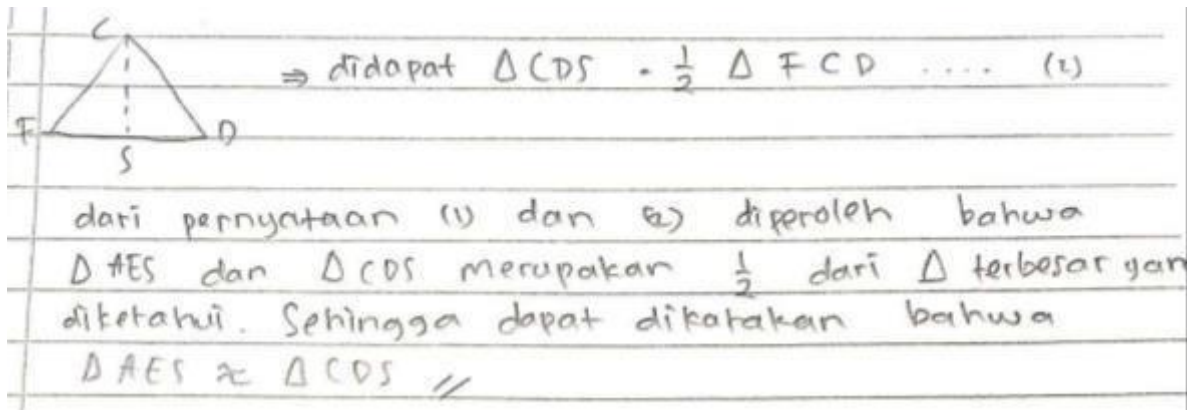 C
⇒ didapat Δ CDS = ½ Δ FCD .... (2)
F D
S
dari pernyataan (1) dan (2) diperoleh bahwa
Δ AES dan Δ CDS merupakan ½ dari Δ terbesar yan
diketahui. Sehingga dapat dikatakan bahwa
Δ AES ≈ Δ CDS //